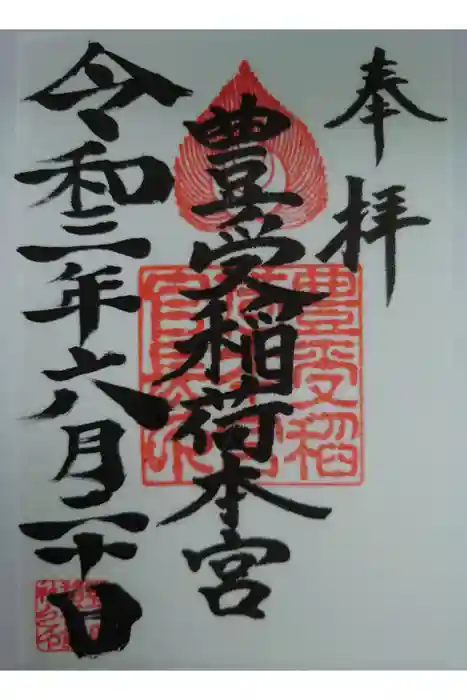 奉拝
豊受稲荷本宮
令和三年六月二十日
豊受稲